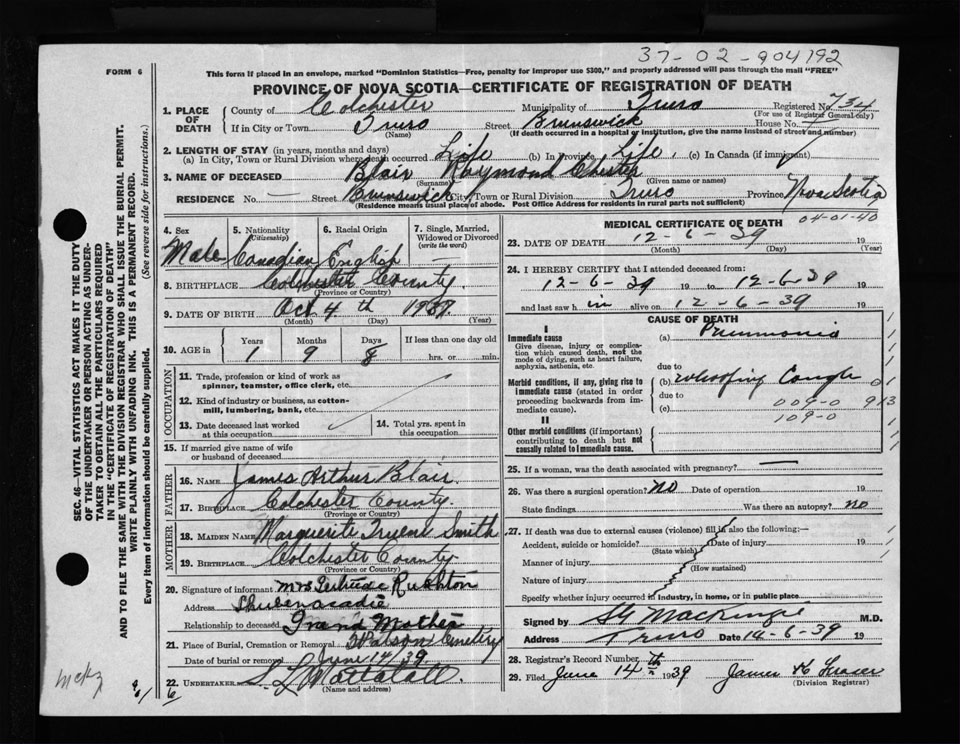 37-02-904192
FORM 6
This form if placed in an envelope, marked "Dominion Statistics—Free, penalty for improper use $300," and properly addressed will pass through the mail "FREE"
PROVINCE OF NOVA SCOTIA—CERTIFICATE OF REGISTRATION OF DEATH
1. PLACE OF DEATH County of Colchester Municipality of Truro Registered No. 734
(For use of Registrar General only)
If in City or Town Truro Street Brunswick House No.
(Name) (If death occurred in a hospital or institution, give the name instead of street and number)
2. LENGTH OF STAY (in years, months and days)
(a) In City, Town or Rural Division where death occurred Life (b) In Province Life. (c) In Canada (if immigrant)
3. NAME OF DECEASED Blair Raymond Chester
(Surname) (Given name or names)
RESIDENCE No. — Street Brunswick City, Town or Rural Division Truro Province Nova Scotia
(Residence means usual place of abode. Post Office Address for residents in rural parts not sufficient)
04-01-40
4. Sex Male
5. Nationality (Citizenship) Canadian
6. Racial Origin English
7. Single, Married, Widowed or Divorced (write the word)
8. BIRTHPLACE Colchester County.
(Province or Country)
9. DATE OF BIRTH Oct 4th
(Month) (Day) (Year)
10. AGE in Years 1 Months 9 Days 8 If less than one day old
hrs. or min.
OCCUPATION
11. Trade, profession or kind of work as spinner, teamster, office clerk, etc.
12. Kind of industry or business, as cotton-mill, lumbering, bank, etc.
13. Date deceased last worked at this occupation
14. Total yrs. spent in this occupation
15. If married give name of wife or husband of deceased
FATHER
16. NAME James Arthur Blair
17. BIRTHPLACE Colchester County.
(Province or Country)
MOTHER
18. MAIDEN NAME Marguerite Smith
19. BIRTHPLACE Colchester County
(Province or Country)
20. Signature of informant Mrs Gertrude Rushton
Address Shubenacadie
Relationship to deceased Grand Mother
21. Place of Burial, Cremation or Removal Cemetery
Date of burial or removal June 14/39
22. UNDERTAKER
(Name and address)
MEDICAL CERTIFICATE OF DEATH
23. DATE OF DEATH 12-6-39 19
(Month) (Day) (Year)
24. I HEREBY CERTIFY that I attended deceased from:
12-6-39 19 to 12-6-39 19
and last saw h im alive on 12-6-39 19
CAUSE OF DEATH
I
Immediate cause (a) Pneumonia
Give disease, injury or complication which caused death, not the mode of dying, such as heart failure, asphyxia, asthenia, etc.
due to
Morbid conditions, if any, giving rise to immediate cause (stated in order proceeding backwards from immediate cause).
(b) Whooping Cough
due to
(c) 009-0 913
109-0
II
Other morbid conditions (if important) contributing to death but not causally related to immediate cause.
25. If a woman, was the death associated with pregnancy? —
26. Was there a surgical operation? no Date of operation 19
State findings Was there an autopsy? no
27. If death was due to external causes (violence) fill in also the following:—
Accident, suicide or homicide? Date of injury 19
(State which)
Manner of injury
(How sustained)
Nature of injury
Specify whether injury occurred in industry, in home, or in public place.
Signed by MacKenzie M.D.
Address Truro Date 14-6-39 19
28. Registrar's Record Number
29. Filed June 14th 1939 James Fraser
(Division Registrar)
SEC. 46—VITAL STATISTICS ACT MAKES IT THE DUTY
OF THE UNDERTAKER OR PERSON ACTING AS UNDERTAKER TO OBTAIN ALL THE PARTICULARS REQUIRED
IN THE "CERTIFICATE OF REGISTRATION OF DEATH"
AND TO FILE THE SAME WITH THE DIVISION REGISTRAR WHO SHALL ISSUE THE BURIAL PERMIT.
WRITE PLAINLY WITH UNFADING INK. THIS IS A PERMANENT RECORD.
Every item of information should be carefully supplied. (See reverse side for instructions.)